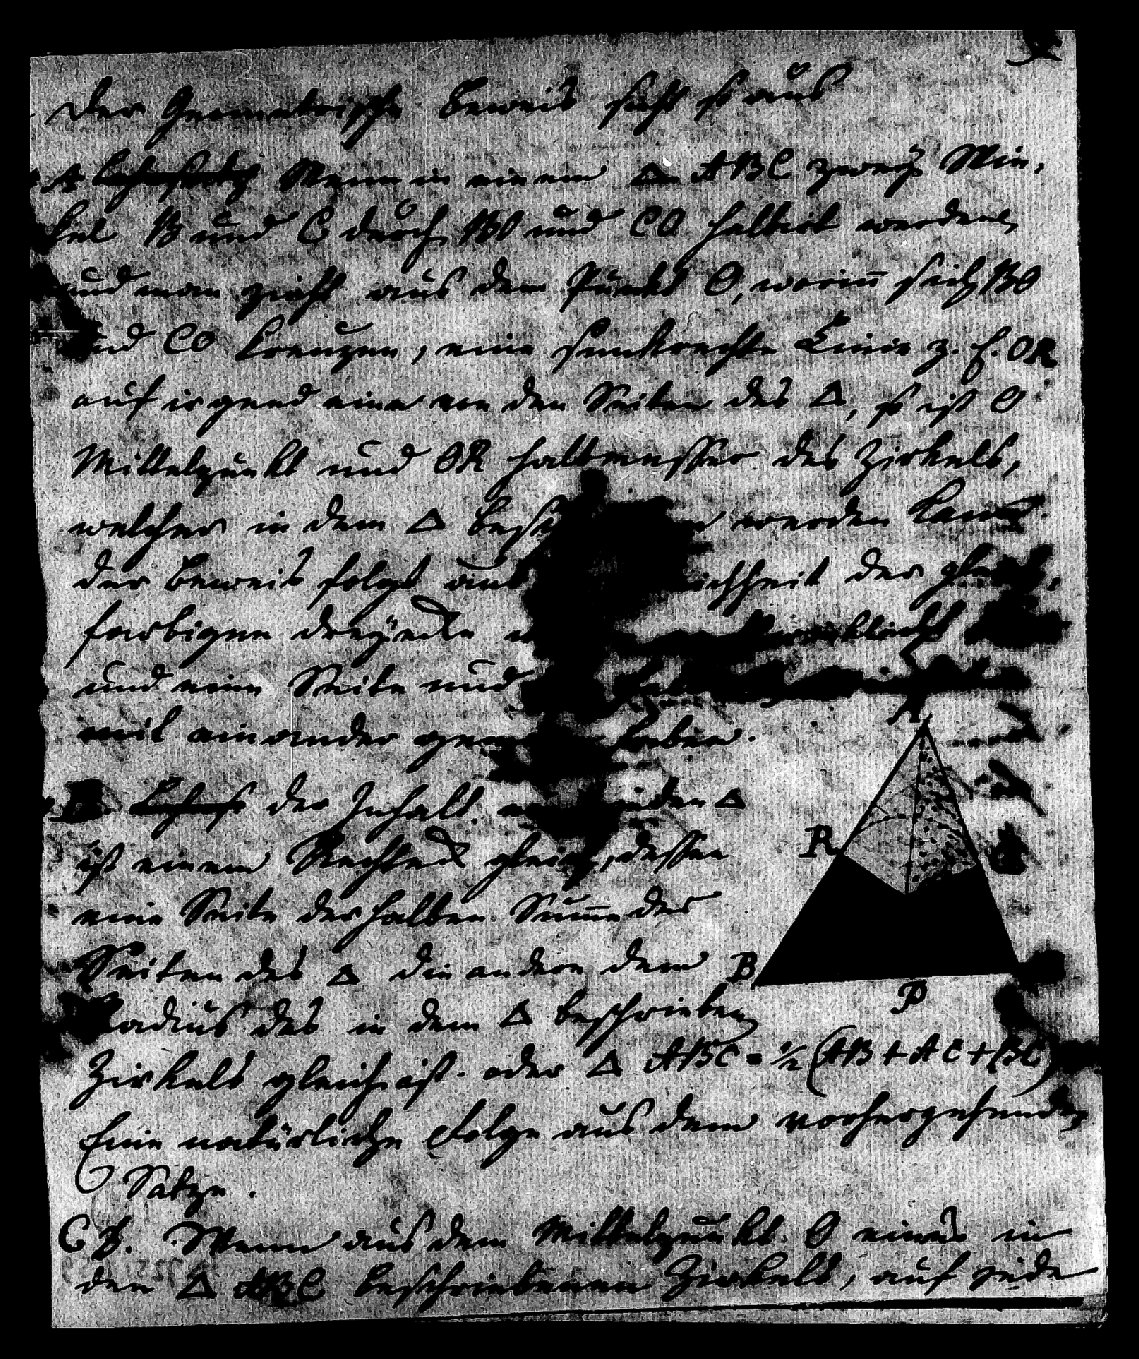 Der Geometrische Beweis sieht so aus
A Wenn in einem △ ABC zwey Win,
kel B und C durch BO und CO halbirt werden,
und man zieht aus dem Punkt O, worin sich BO
und CO kreuzen, eine senkrechte Linie z. E. OR
auf irgend eine von den Seiten des △, so ist O
Mittelpunkt und OR Halbmesser des Zirkels,
welcher in dem △ werden kann
der Beweis folgt aus der
farbigen Dreyecke
und eine Seite und
mit einander haben.
der Inhalt △
ist einem Rechteck gleich, dessen
eine Seite der halben Summe der
Seiten des △ die andere dem
Radius des in dem △ beschrieben
Zirkels gleich ist. oder △ ABC = ½ (AB + AC + BC)
Eine natürliche Folge aus dem vorhergehenden
Satze.
C Wenn aus dem Mittelpunkt O eines in
den △ ABC beschriebenen Zirkels, auf jede
A
R
B
P